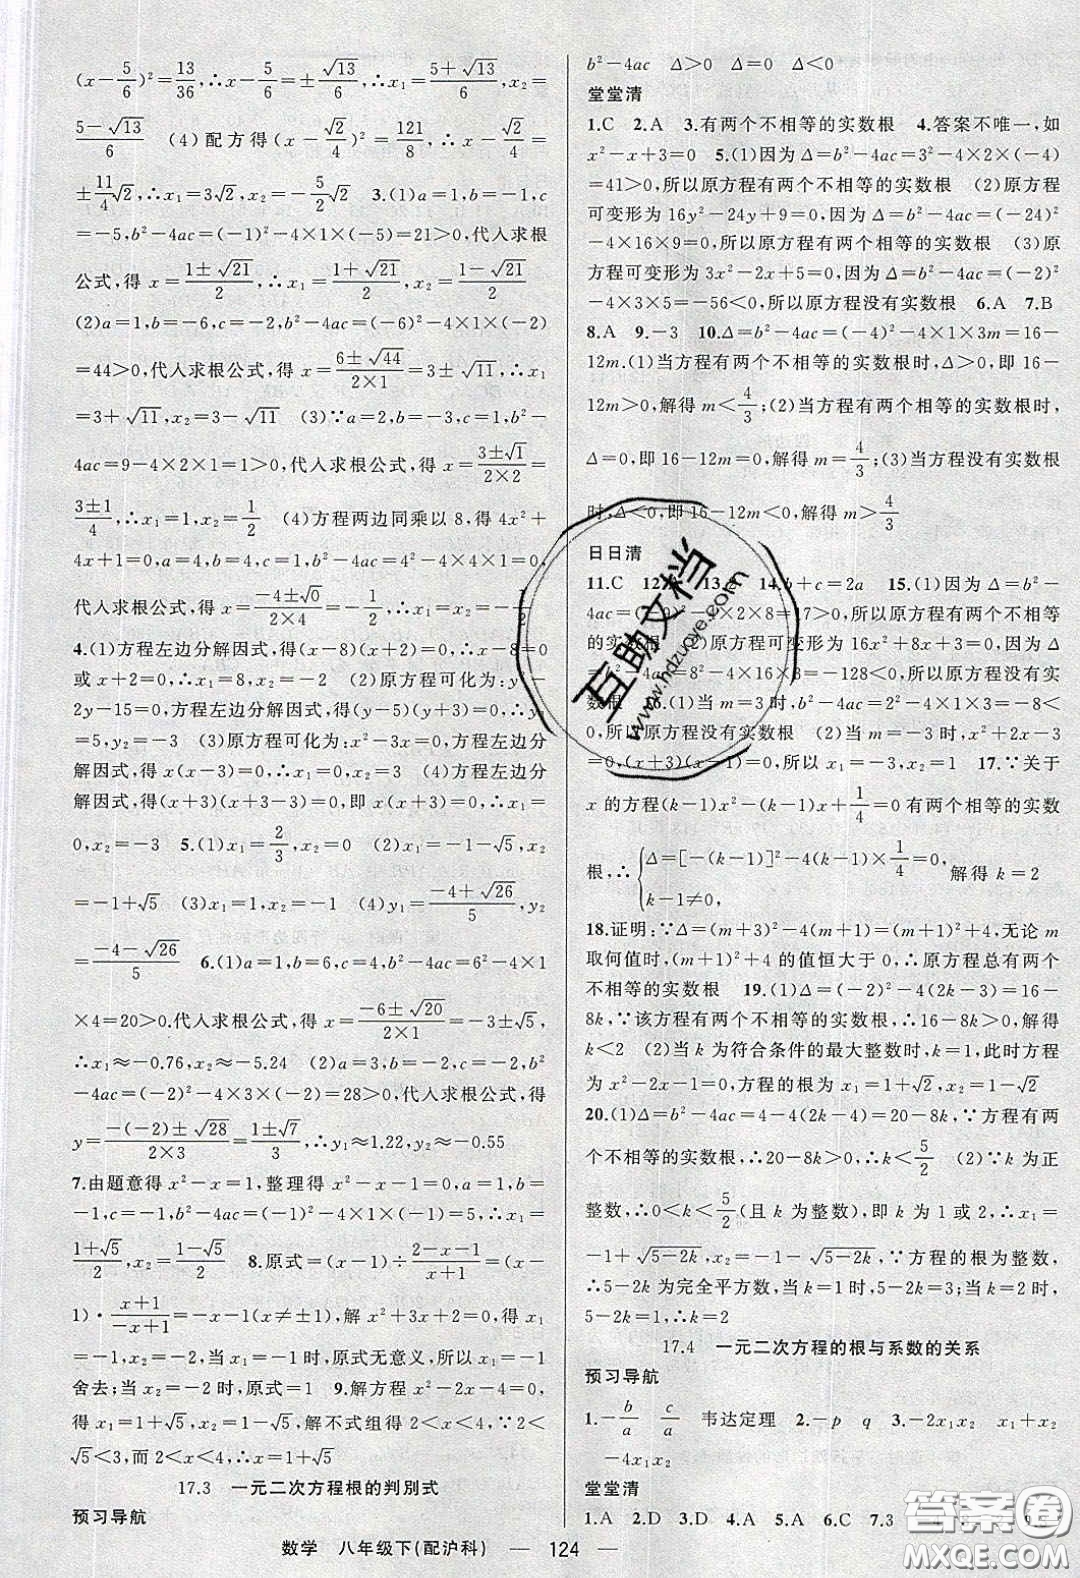 (x-5/6)²=13/36,∴x-5/6=±√13/6,∴x₁=(5+√13)/6,x₂=
(5-√13)/6 (4)配方得(x-√2/4)²=121/8,∴x-√2/4=
±11/4√2,∴x₁=3√2,x₂=-5/2√2 3.(1)a=1,b=-1,c
=-5,b²-4ac=(-1)²-4×1×(-5)=21>0,代入求根
公式,得x=(1±√21)/2,∴x₁=(1+√21)/2,x₂=(1-√21)/2
(2)a=1,b=-6,c=-2,b²-4ac=(-6)²-4×1×(-2)
=44>0,代入求根公式,得x=(6±√44)/(2×1)=3±√11,∴x₁
=3+√11,x₂=3-√11 (3)∵a=2,b=-3,c=1,b²-
4ac=9-4×2×1=1>0,代入求根公式,得x=(3±√1)/(2×2)=
(3±1)/4,∴x₁=1,x₂=1/2 (4)方程两边同乘以8,得4x²+
4x+1=0,∴a=4,b=4,c=1,b²-4ac=4²-4×4×1=0,
代入求根公式,得x=(-4±√0)/(2×4)=-1/2,∴x₁=x₂=-1/2
4.(1)方程左边分解因式,得(x-8)(x+2)=0,∴x-8=0
或x+2=0,∴x₁=8,x₂=-2 (2)原方程可化为:y²-
2y-15=0,方程左边分解因式,得(y-5)(y+3)=0,∴y₁
=5,y₂=-3 (3)原方程可化为:x²-3x=0,方程左边分
解因式,得x(x-3)=0,∴x₁=0,x₂=3 (4)方程左边分
解因式,得(x+3)(x+3-3)=0,即x(x+3)=0,∴x₁=
0,x₂=-3 5.(1)x₁=2/3,x₂=0 (2)x₁=-1-√5,x₂
=-1+√5 (3)x₁=1,x₂=-1 (4)y₁=(-4+√26)/5,y₂
=(-4-√26)/5 6.(1)a=1,b=6,c=4,b²-4ac=6²-4×1
×4=20>0.代入求根公式,得x=(-6±√20)/(2×1)=-3±√5,
∴x₁≈-0.76,x₂≈-5.24 (2)a=3,b=-2,c=-2,b²-
4ac=(-2)²-4×3×(-2)=28>0,代入求根公式,得
y=(-(-2)±√28)/(2×3)=(1±√7)/3,∴y₁≈1.22,y₂≈-0.55
7.由题意得x²-x=1,整理得x²-x-1=0,∵a=1,b=
-1,c=-1,b²-4ac=(-1)²-4×1×(-1)=5>0,∴x₁=
(1+√5)/2,x₂=(1-√5)/2 8.原式=(x-1)÷(2-x-1)/(x+1)=(x-
1)·(x+1)/(-x+1)=-x-1(x≠±1),解x²+3x+2=0,得x₁
=-1,x₂=-2,当x₁=-1时,原式无意义,所以x₁=-1
舍去;当x₂=-2时,原式=1 9.解方程x²-2x-4=0,
得x₁=1+√5,x₂=1-√5,解不式组得2<x<4,∵2<
√5<3,而2<x<4,∴x=1+√5
17.3 一元二次方程根的判别式
预习导航
b²-4ac Δ>0 Δ=0 Δ<0
堂堂清
1.C 2.A 3.有两个不相等的实数根 4.答案不唯一,如
x²-x+3=0 5.(1)因为Δ=b²-4ac=3²-4×2×(-4)
=41>0,所以原方程有两个不相等的实数根 (2)原方程
可变形为16y²-24y+9=0,因为Δ=b²-4ac=(-24)²
-4×16×9=0,所以原方程有两个相等的实数根 (3)原
方程可变形为3x²-2x+5=0,因为Δ=b²-4ac=(-2)²
-4×3×5=-56<0,所以原方程没有实数根 6.A 7.B
8.A 9.-3 10.Δ=b²-4ac=(-4)²-4×1×3m=16-
12m.(1)当方程有两个不相等的实数根时,Δ>0,即16-
12m>0,解得m<4/3;(2)当方程有两个相等的实数根时,
Δ=0,即16-12m=0,解得m=4/3;(3)当方程没有实数根
时,Δ<0,即16-12m<0,解得m>4/3
日日清
11.C 14.b+c=2a 15.(1)因为Δ=b²-
4ac= ×2×8=17>0,所以原方程有两个不相等
的实数根 (2)原方程可变形为16x²+8x+3=0,因为Δ=
b²-4ac=8²-4×16×3=-128<0,所以原方程没有实
数根 16.(1)当m=3时,b²-4ac=2²-4×3=-8<
0,所以原方程没有实数根 (2)当m=-3时,x²+2x-3
=0,(x+3)(x-1)=0,所以x₁=-3,x₂=1 17.∵关于
x的方程(k-1)x²-(k-1)x+1/4=0有两个相等的实数
根,∴{Δ=[-(k-1)]²-4(k-1)×1/4=0, k-1≠0, 解得k=2
18.证明:∵Δ=(m+3)²-4(m+1)=(m+1)²+4,无论m
取何值时,(m+1)²+4的值恒大于0,∴原方程总有两个
不相等的实数根 19.(1)Δ=(-2)²-4(2k-3)=16-
8k,∵该方程有两个不相等的实数根,∴16-8k>0,解得
k<2 (2)当k为符合条件的最大整数时,k=1,此时方程
为x²-2x-1=0,方程的根为x₁=1+√2,x₂=1-√2
20.(1)Δ=b²-4ac=4-4(2k-4)=20-8k,∵方程有两
个不相等的实数根,∴20-8k>0,∴k<5/2 (2)∵k为正
整数,∴0<k<5/2(且k为整数),即k为1或2,∴x₁=
-1+√(5-2k),x₂=-1-√(5-2k),∵方程的根为整数,
∴5-2k为完全平方数,当k=1时,5-2k=3;当k=2时,
5-2k=1,∴k=2
17.4 一元二次方程的根与系数的关系
预习导航
1.-b/a c/a 韦达定理 2.-p q 3.-2x₁x₂ x₁+x₂
-4x₁x₂
堂堂清
1.A 2.D 3.D 4.A 5.A 6.C 7.3
数学 八年级下(配沪科) — 124 —
互助文档
www.hdzuoye.com
答案圈
MXQE.COM